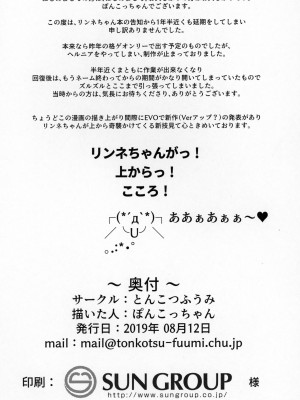 ぽんこっちゃんでございます。
この度は、リンネちゃん本の告知から1年半近くも延期をしてしまい
申し訳ありませんでした。
本来なら昨年の格ゲオンリーで出す予定のものでしたが、
ヘルニアを発症してしまい、制作が止まっておりました。
半年近くまともに作業が出来なくなり
回復後は、もうネーム終わってからの期間がかなり開いてしまっていたもので
ズルズルとここまで引っ張ってしまいました。
当時からの方は、気長にお待ちくださり、ありがとうございます。
ちょうどこの漫画の描き上がり間際にEVOで新作(Verアップ?)の発表があり
リンネちゃんが上から奇襲かけてくる新技見て心ときめいております。
リンネちゃんがっ!
上からっ!
こころ!
┌(*´д`*)┐ああぁあぁぁ〜♥
／╰U╯＼
｡.:*･°
〜 奥付 〜
サークル：とんこつふうみ
描いた人：ぽんこっちゃん
発行日：2019年 08月12日
mail：mail@tonkotsu-fuumi.chu.jp
印刷： SUN GROUP 様
http://www.sungroup.co.jp